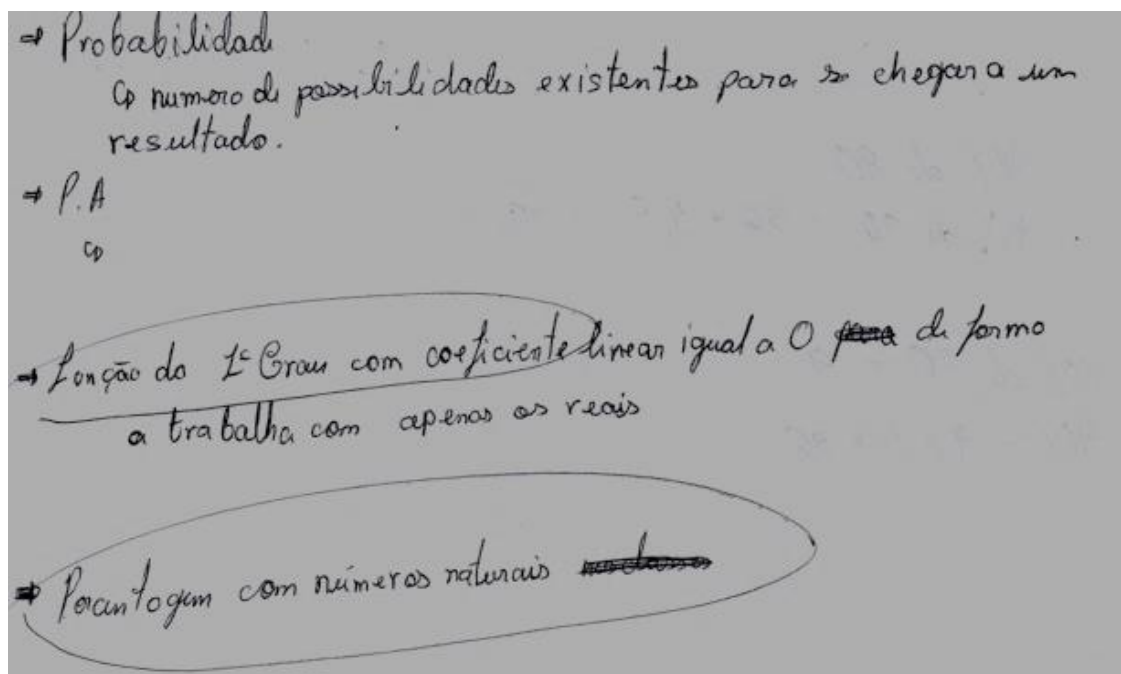 ⇒ Probabilidade
↳ numero de possibilidades existentes para se chegar a um
resultado.
⇒ P.A
↳
⇒ Função do 1º Grau com coeficiente linear igual a 0 de forma
a trabalha com apenas os reais
⇒ Porcentagem com números naturais